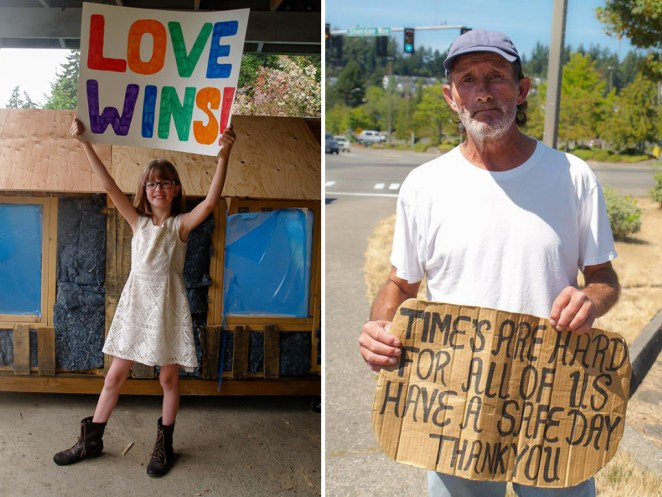 LOVE
WINS!
TIME'S ARE HARD
FOR ALL OF US
HAVE A SAFE DAY
THANK YOU